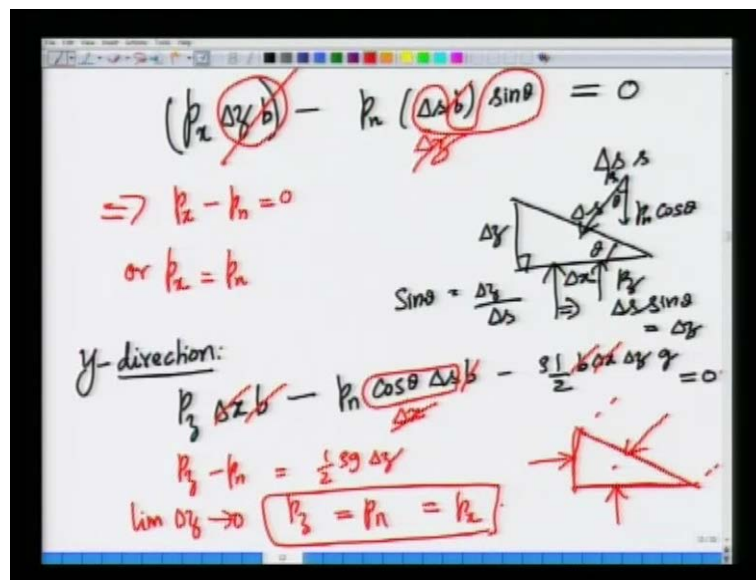 (p_x Δz b) − p_n (Δs b) sinθ = 0
Δz
=> p_x − p_n = 0
or p_x = p_n
Δs s
θ
p_n cosθ
Δs
Δz
θ
Δx
p_z
Sinθ = Δz/Δs => Δs sinθ = Δz
y-direction:
p_z Δx b − p_n cosθ Δs b − ρ 1/2 b Δx Δz g = 0
Δx
p_z − p_n = 1/2 ρg Δz
lim Δz → 0 p_z = p_n = p_x